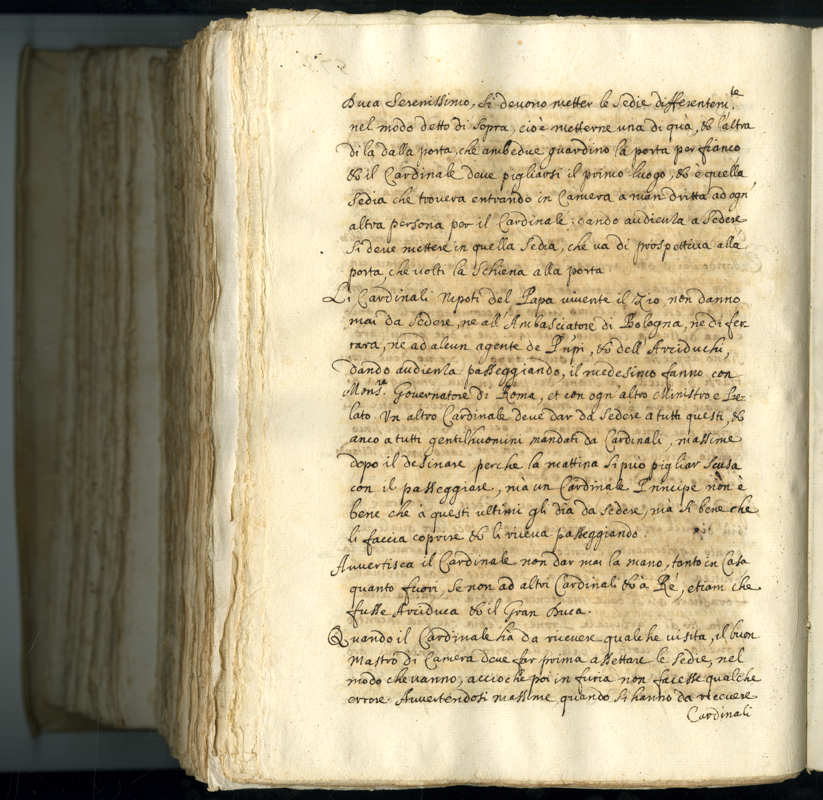 Duca Serenissimo, si devono metter le sedie differentem.te
nel modo detto di sopra, cioè metterne una di quà, & l'altra
di la dalla porta, che ambedue guardino la porta per fianco
& il Cardinale deve pigliarsi il primo luogo, & è quella
sedia che trovera entrando in Camera a man dritta ad ogn'
altra persona per il Cardinale; dando audienza a sedere
si deve mettere in quella sedia, che va di prospettiva alla
porta, che volti la schiena alla porta.
Li Cardinali nipoti del Papa vivente il Zio non danno
mai da sedere, ne all'Ambasciatore di Bologna, ne di fer-
rara, ne ad alcun agente de Pnpi, & dell'Arciduchi,
dando audienza passeggiando, il medesimo fanno con
Mons.re Governatore di Roma, et con ogn'altro Ministro e Pe-
lato. Un altro Cardinale deve dar da sedere a tutti questi, &
anco a tutti gentilhuomini mandati da Cardinali, massime
dopo il desinare perche la mattina si può pigliar scusa
con il passeggiare, mà un Cardinale Principe non è
bene che à questi ultimi gli dia da sedere, mà si bene che
li faccia coprire & li riceva passeggiando.
Avvertisca il Cardinale non dar mai la mano, tanto in Casa
quanto fuori, se non ad altri Cardinali & à Ré, etiam che
fusse Arciduca & il Gran Duca.
Quando il Cardinale hà da ricevere qualche visita, il buon
Mastro di Camera deve far prima assettare le sedie, nel
modo che vanno, accioche poi in furia non facesse qualche
errore. Avvertendosi massime quando si hanno da ricevere
Cardinali